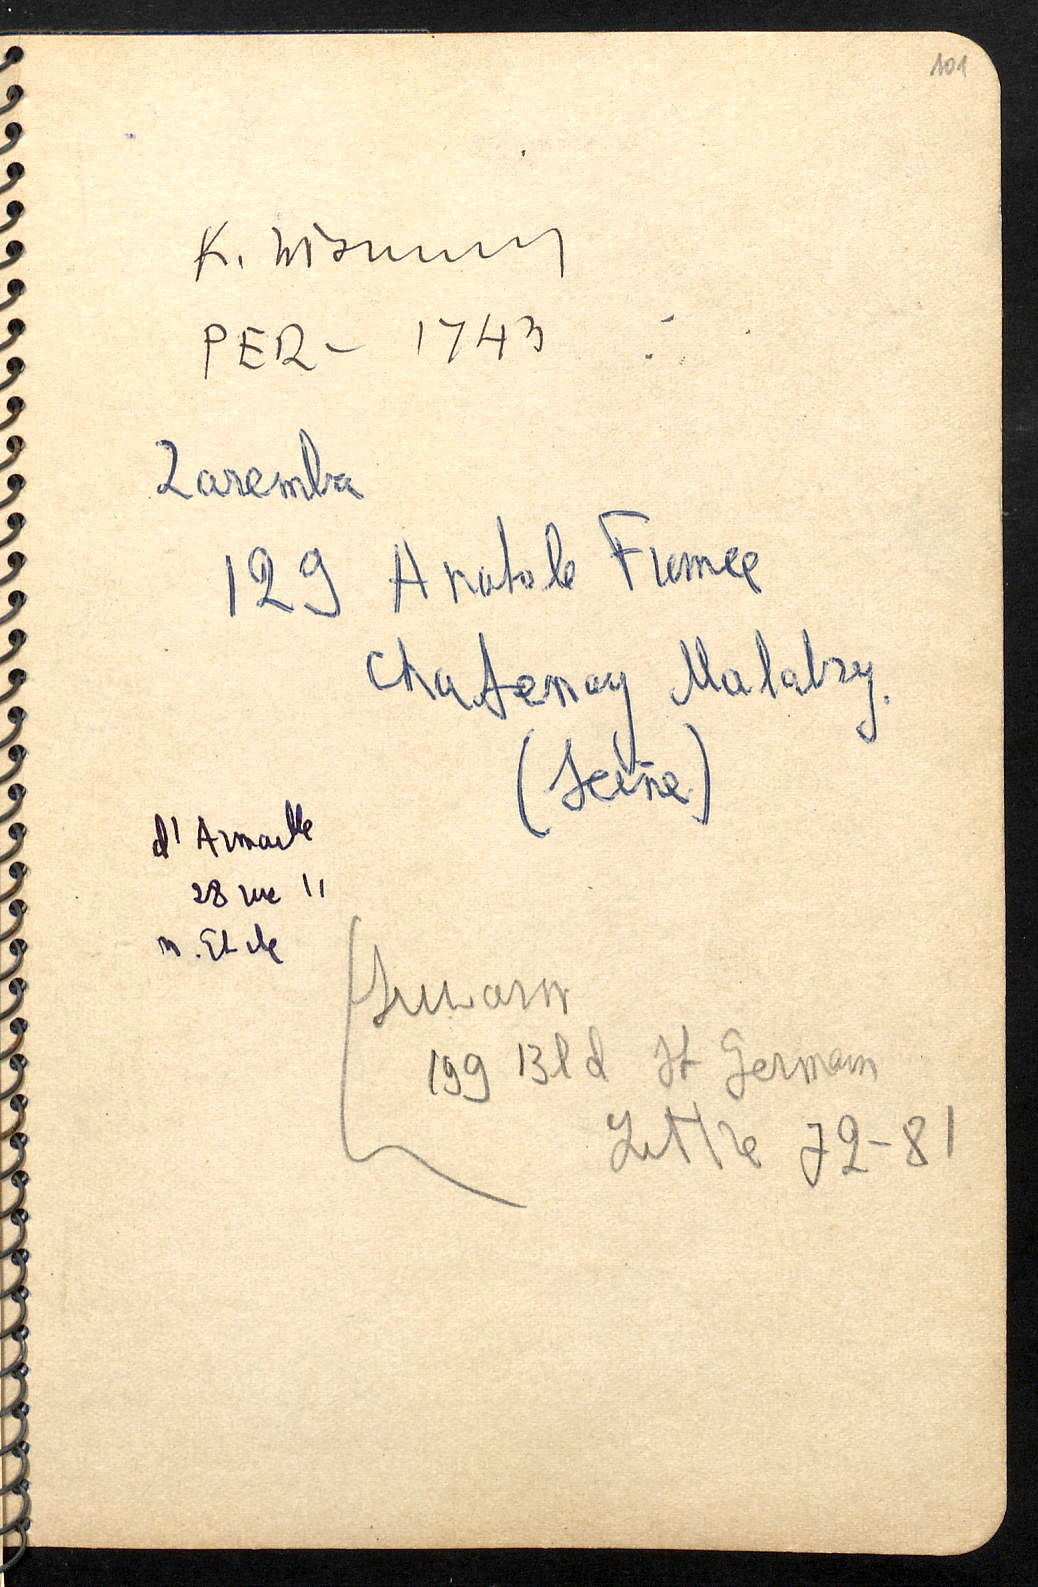 101
K.
PER - 1743
Zaremba
129 Anatole France
Chatenay Malabry.
(Seine)
d'Armaille
28 rue "
m. Etoile
199 Bld St Germain
Littre 72-81